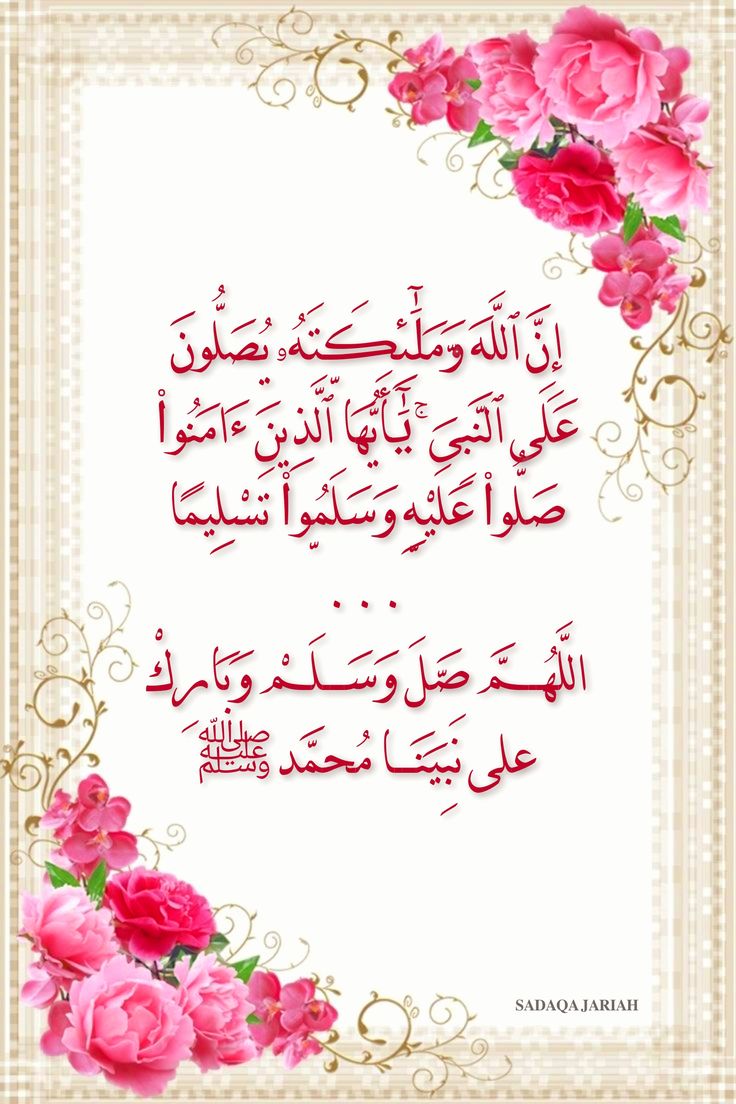 إِنَّ ٱللَّهَ وَمَلَٰٓئِكَتَهُۥ يُصَلُّونَ
عَلَى ٱلنَّبِىِّ ۚ يَٰٓأَيُّهَا ٱلَّذِينَ ءَامَنُوا۟
صَلُّوا۟ عَلَيْهِ وَسَلِّمُوا۟ تَسْلِيمًا
...
اللَّهُــمَّ صَلِّ وَسَــلِّــمْ وَبَارِكْ
على نَبِيِّنَــا مُحمَّد ﷺ
SADAQA JARIAH